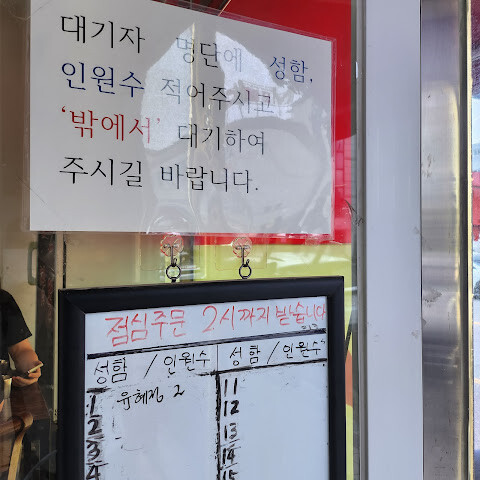 대기자 명단에 성함,
인원수 적어주시고
‘밖에서’ 대기하여
주시길 바랍니다.
점심주문 2시까지 받습니다
성함 / 인원수 성함 / 인원수
1 유혜정 2 11
2 12
3 13
4 14
15